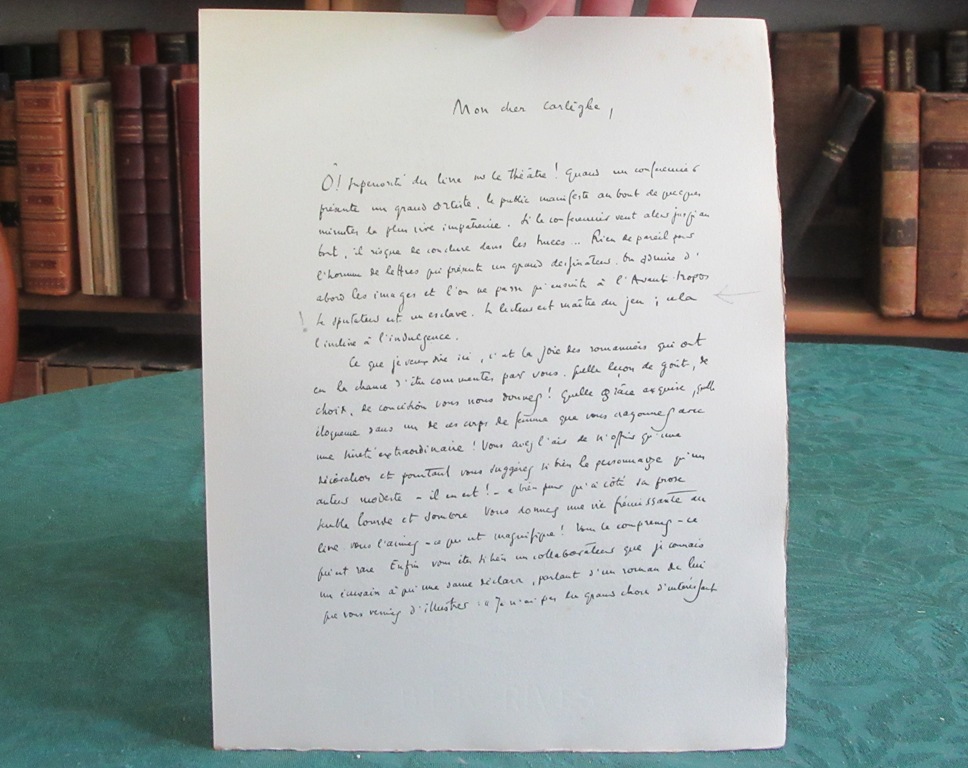 Mon cher Carlègle,
Ô! Supériorité du livre sur le théâtre! Quand un conférencier
présente un grand artiste, le public manifeste au bout de quelques
minutes la plus vive impatience. Si le conférencier veut aller jusqu'au
bout, il risque de conclure dans les huées... Rien de pareil pour
l'homme de lettres qui présente un grand dessinateur. On admire d'
abord les images et l'on ne passe qu'ensuite à l'Avant-propos
Le spectateur est un esclave. Le lecteur est maître du jeu; cela
l'incline à l'indulgence.
Ce que je veux dire ici, c'est la joie des romanciers qui ont
eu la chance d'être commentés par vous. Quelle leçon de goût, de
choix, de concision vous nous donnez! Quelle grâce exquise, quelle
éloquence dans un de ces corps de femme que vous crayonnez avec
une sûreté extraordinaire! Vous avez l'air de n'offrir qu'une
décoration et pourtant vous suggérez si bien le personnage qu'un
auteur modeste - il en est! - a bien peur qu'à côté sa prose
semble lourde et sombre. Vous donnez une vie frémissante au
livre vous l'aimez - ce qui est magnifique! Vous le comprenez - ce
qui est rare. Enfin vous êtes si bien un collaborateur que je connais
un écrivain à qui une dame déclara, parlant d'un roman de lui
que vous veniez d'illustrer : « Je n'ai pas lu grand chose d'intéressant